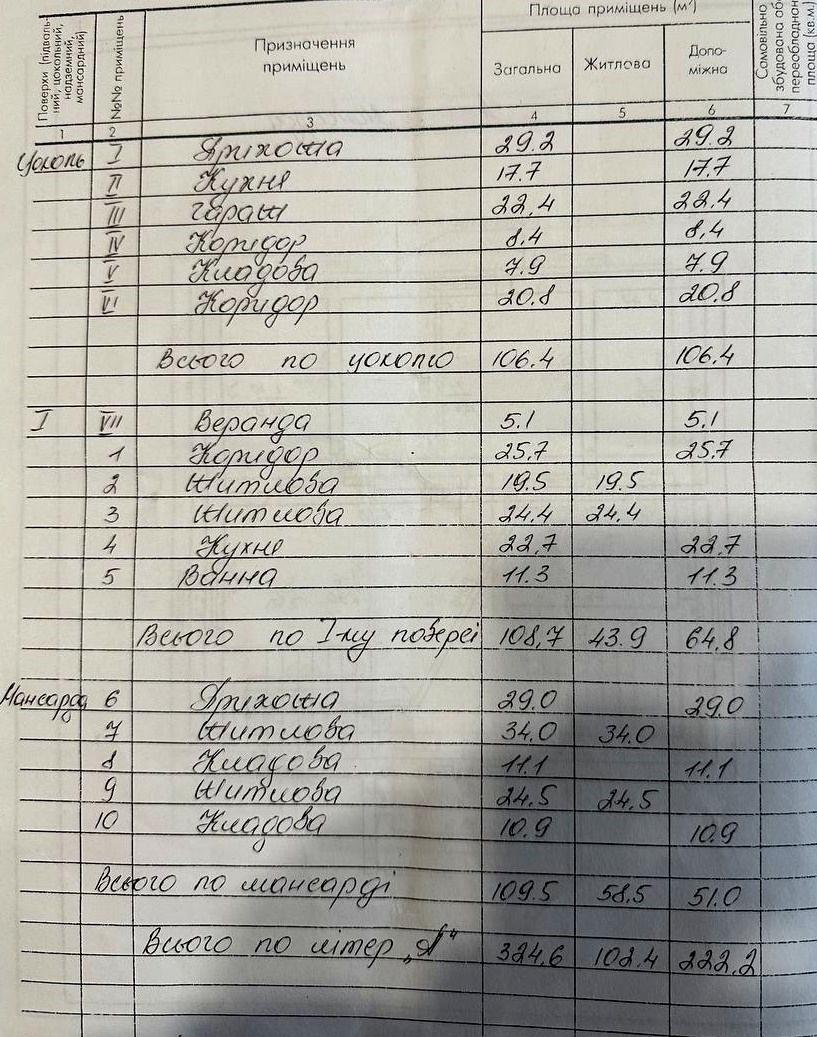 Поверхи (підваль-
ний, цокольний,
надземний,
мансардний)
№№ приміщень
Призначення
приміщень
Площа приміщень (м²)
Загальна
Житлова
Допо-
міжна
Самовільно
збудована або
переобладнан
площа (кв.м.)
1 2 3 4 5 6 7
Цоколь I Прихожа 29.2 29.2
II Кухня 17.7 17.7
III Гараж 22.4 22.4
IV Коридор 8.4 8,4
V Кладова 7.9 7.9
VI Коридор 20.8 20.8
Всього по цоколю 106.4 106.4
I VII Веранда 5.1 5.1
1 Коридор 25.7 25.7
2 Житлова 19.5 19.5
3 Житлова 24.4 24.4
4 Кухня 22,7 22.7
5 Ванна 11.3 11.3
Всього по I-му поверсі 108,7 43.9 64.8
Мансарда 6 Прихожа 29.0 29.0
7 Житлова 34.0 34.0
8 Кладова 11.1 11.1
9 Житлова 24.5 24.5
10 Кладова 10.9 10.9
Всього по мансарді 109.5 58.5 51.0
Всього по літер „А" 324.6 102.4 222.2